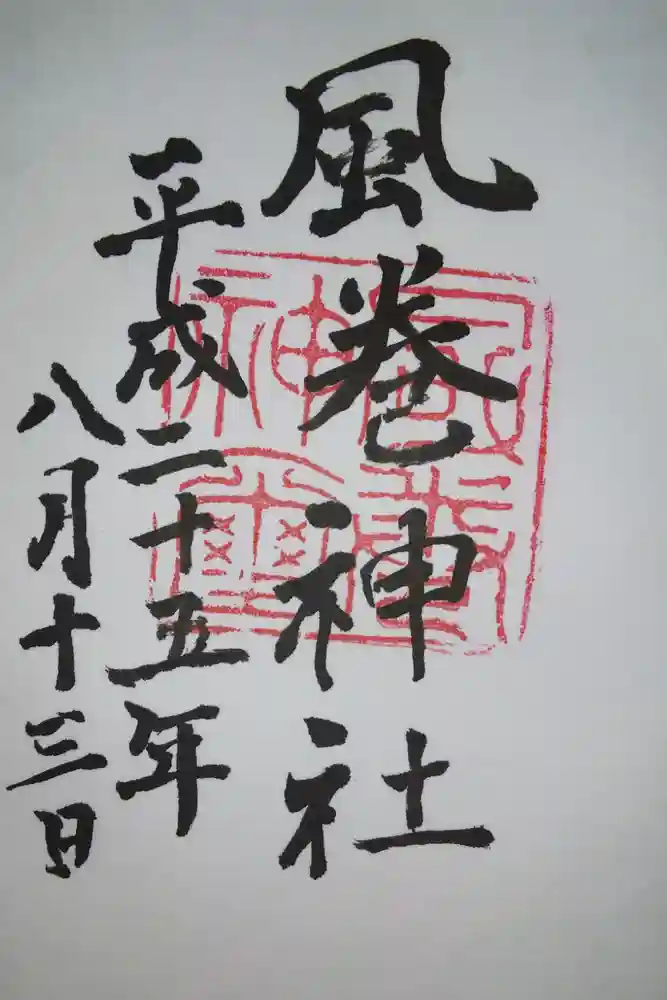 風巻神社
平成二十五年
八月十三日